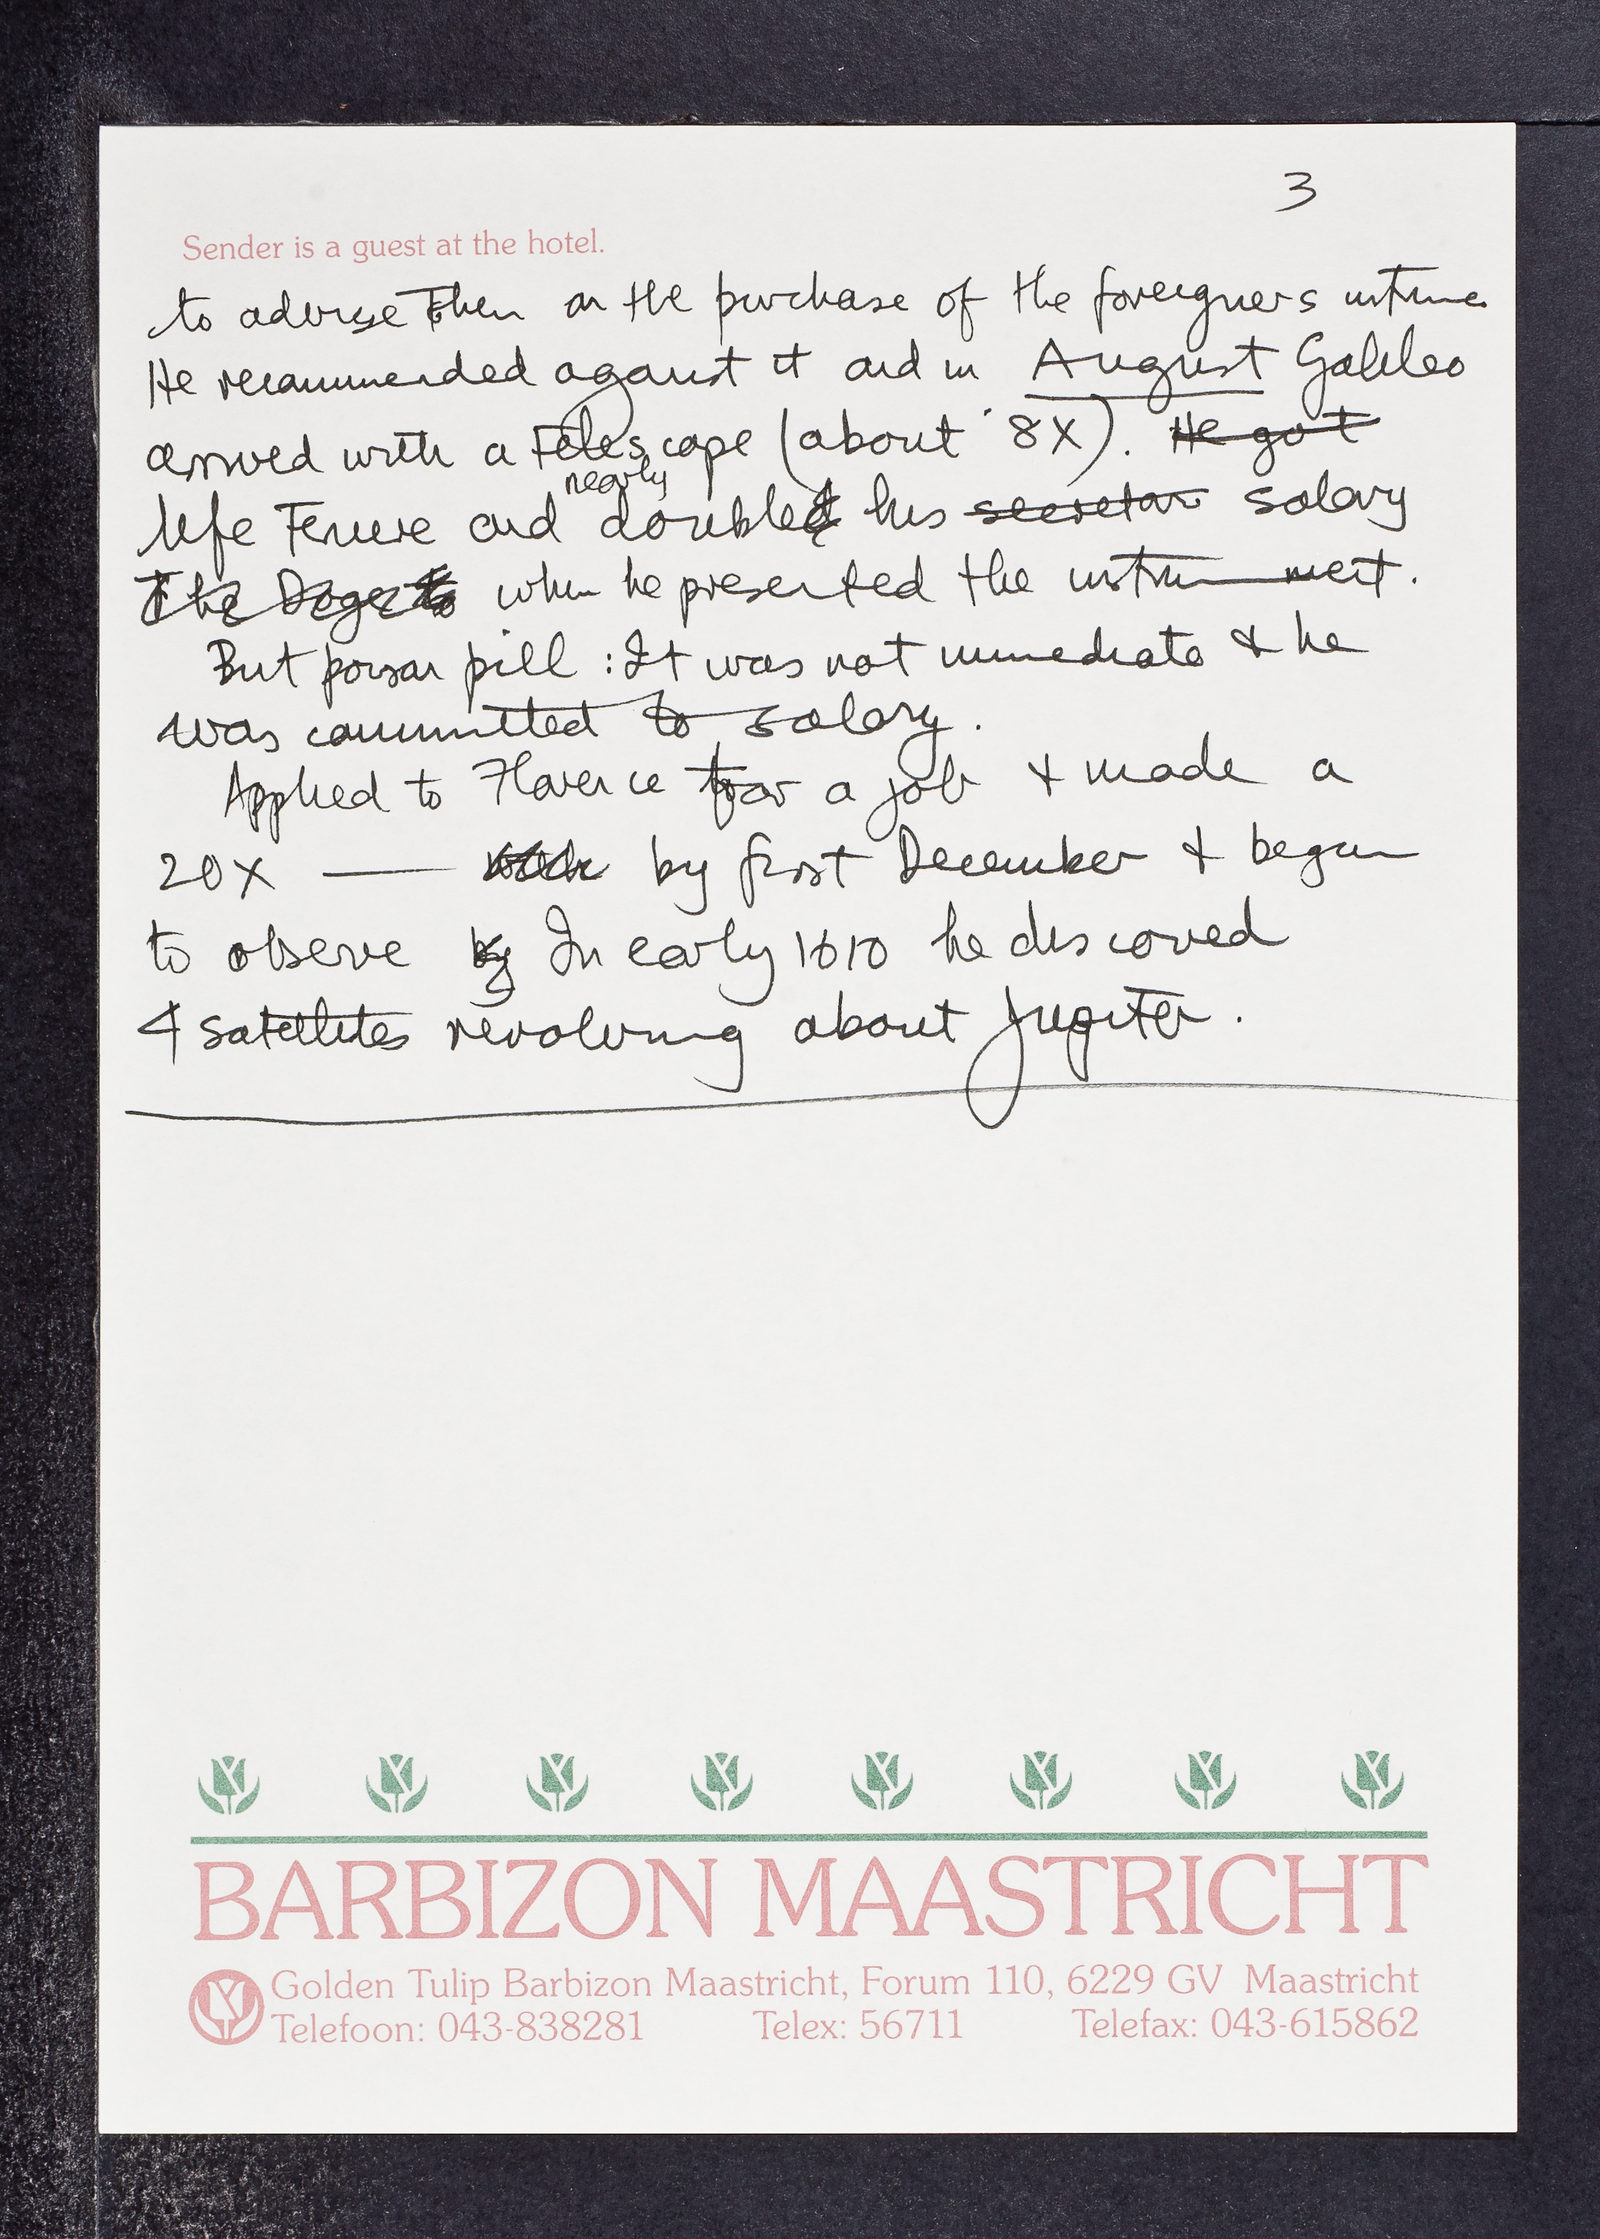 3
Sender is a guest at the hotel.
to advise them on the purchase of the foreigners instrume
He recommended against it and in August Galileo
arrived with a telescope (about 8X). He got
nearly
life Tenure and doubled his secretar salary
The Doge to when he presented the instrument.
But poison pill : It was not immediate & he
was committed to salary.
Applied to Florence for a job & made a
20X — by first December & began
to observe by In early 1610 he discoved
4 satellites revolving about Jupiter.
BARBIZON MAASTRICHT
Golden Tulip Barbizon Maastricht, Forum 110, 6229 GV Maastricht
Telefoon: 043-838281 Telex: 56711 Telefax: 043-615862